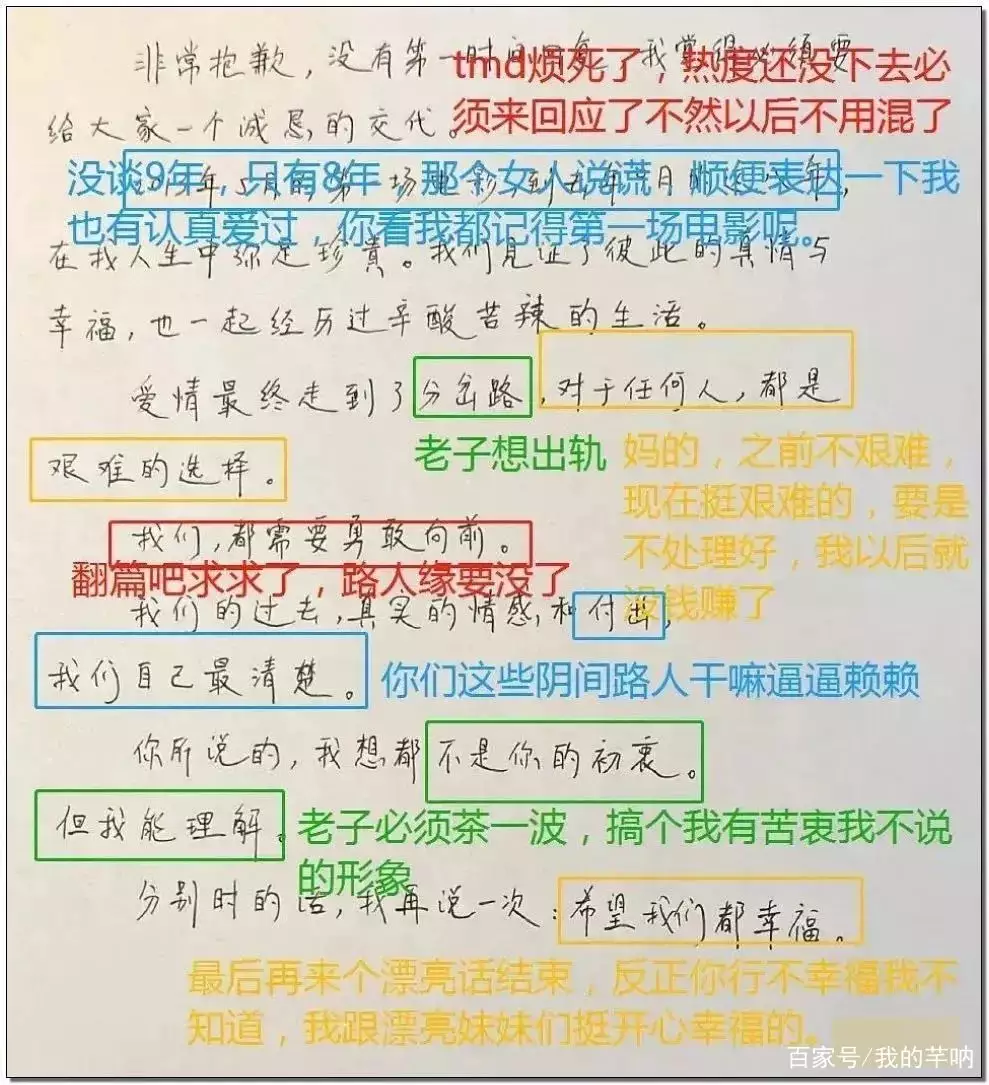 非常抱歉，没有第一时间回复，我觉得必须要
tmd烦死了，热度还没下去必
须来回应了不然以后不用混了
给大家一个诚恳的交代。
没谈9年，只有8年，那个女人说谎，顺便表达一下我
也有认真爱过，你看我都记得第一场电影呢。
年5月的第一场电影到去年 月
在我人生中弥足珍贵。我们见证了彼此的真情与
幸福，也一起经历过辛酸苦辣的生活。
爱情最终走到了分岔路，对于任何人，都是
老子想出轨
妈的，之前不艰难，
现在挺艰难的，要是
不处理好，我以后就
没钱赚了
艰难的选择。
我们，都需要勇敢向前。
翻篇吧求求了，路人缘要没了
我们的过去，真实的情感，和付出，
我们自己最清楚。
你们这些阴间路人干嘛逼逼赖赖
你所说的，我想都不是你的初衷。
但我能理解。
老子必须茶一波，搞个我有苦衷我不说
的形象
分别时的话，我再说一次：希望我们都幸福。
最后再来个漂亮话结束，反正你行不幸福我不
知道，我跟漂亮妹妹们挺开心幸福的。
百家号/我的芊呐